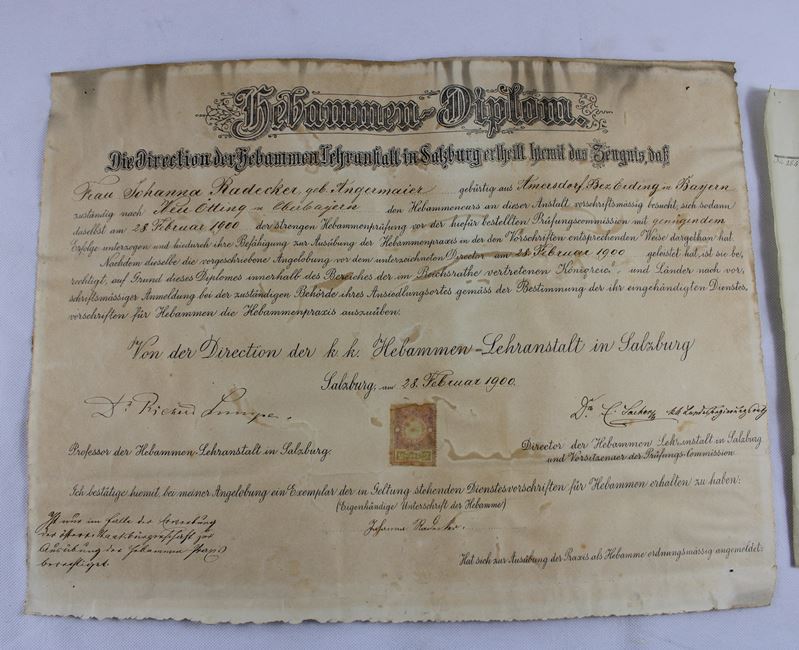 Hebammen-Diplom.
Die Direction der Hebammen Lehranstalt in Salzburg ertheilt hiemit das Zeugnis, daß
Frau Johanna Radecker geb. Angermaier gebürtig aus Amersdorf, Bez. Erding in Bayern
zuständig nach Neu Otting in Oberbayern den Hebammencurs an dieser Anstalt vorschriftsmässig besucht, sich sodann
daselbst am 28 Februar 1900 der strengen Hebammenprüfung vor der hiefür bestellten Prüfungscommission mit genügendem
Erfolge unterzogen und hiedurch ihre Befähigung zur Ausübung der Hebammenpraxis in der den Vorschriften entsprechenden Weise dargethan hat.
Nachdem dieselbe die vorgeschriebene Angelobung vor dem unterzeichneten Director am 28. Februar 1900 geleistet hat, ist sie be,
rechtigt, auf Grund dieses Diplomes innerhalb des Bereiches der im Reichsrathe vertretenen Königreiche und Länder nach vor,
schriftsmässiger Anmeldung bei der zuständigen Behörde ihres Ansiedlungsortes gemäss der Bestimmung der ihr eingehändigten Dienstes,
vorschriften für Hebammen die Hebammenpraxis auszuüben.
Von der Direction der k. k. Hebammen-Lehranstalt in Salzburg
Salzburg, am 28. Februar 1900.
Dr Richard
Dr. E.
Professor der Hebammen-Lehranstalt in Salzburg.
Director der Hebammen Lehranstalt in Salzburg
und Vorsitzender der Prüfungs-Commission
Ich bestätige hiemit, bei meiner Angelobung ein Exemplar der in Geltung stehenden Dienstesvorschriften für Hebammen erhalten zu haben:
(Eigenhändige Unterschrift der Hebamme)
Johanna Radecker.
Ist nur im Falle der Erwerbung
der österr. Staatsbürgerschaft zur
Ausübung der Hebammen Praxis
berechtiget.
Hat sich zur Ausübung der Praxis als Hebamme ordnungsmässig angemeldet: